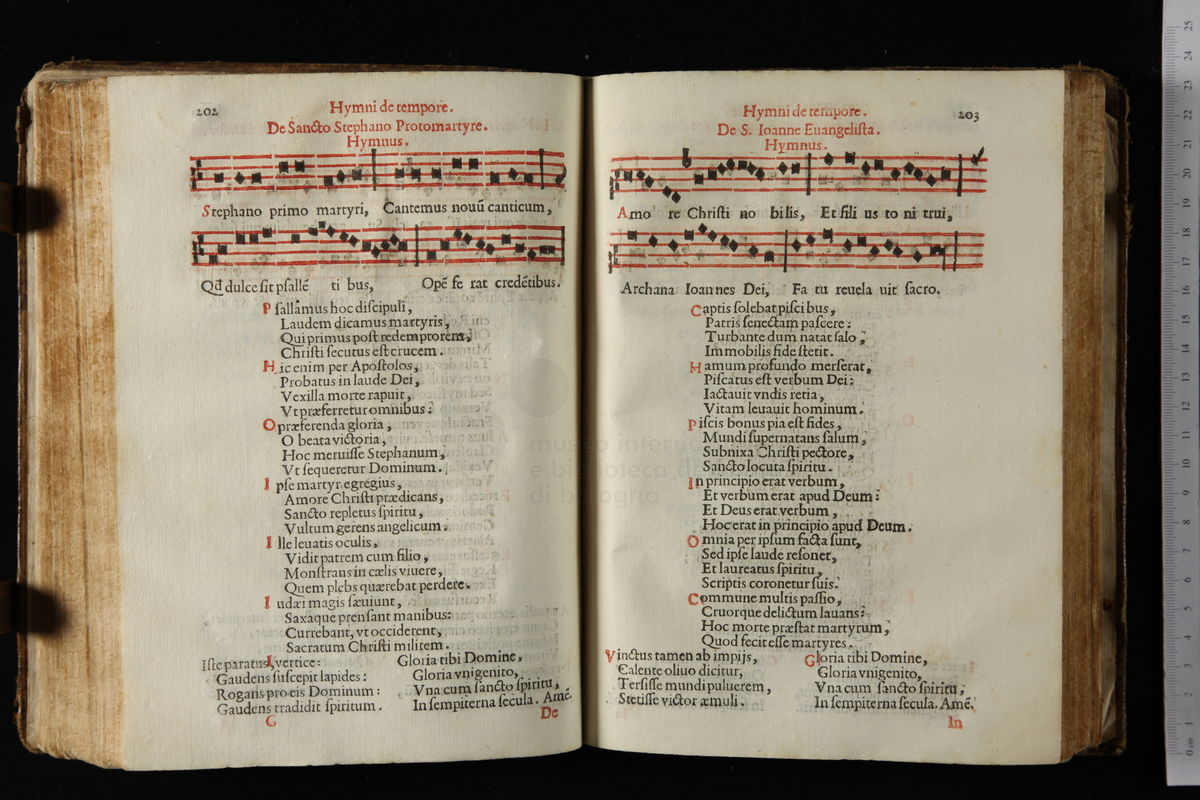 202
Hymni de tempore.
De Sancto Stephano Protomartyre.
Hymnus.
Stephano primo martyri, Cantemus nouũ canticum,
Qđ dulce sit psallẽ ti bus, Opẽ fe rat credẽtibus.
Psallamus hoc discipuli,
Laudem dicamus martyris,
Qui primus post redemptorem,
Christi secutus est crucem.
Hic enim per Apostolos,
Probatus in laude Dei,
Vexilla morte rapuit,
Vt præferretur omnibus:
O præferenda gloria,
O beata victoria,
Hoc meruisse Stephanum,
Vt sequeretur Dominum.
Ipse martyr egregius,
Amore Christi prædicans,
Sancto repletus spiritu,
Vultum gerens angelicum.
Ille leuatis oculis,
Vidit patrem cum filio,
Monstrans in cælis viuere,
Quem plebs quærebat perdere.
Iudæi magis sæuiunt,
Saxaque prensant manibus:
Currebant, vt occiderent,
Sacratum Christi militem.
Iste paratus vertice:
Gaudens suscepit lapides:
Rogans pro eis Dominum:
Gaudens tradidit spiritum.
Gloria tibi Domine,
Gloria vnigenito,
Vna cum sancto spiritu,
In sempiterna secula. Amẽ.
G
De
203
Hymni de tempore.
De S. Ioanne Euangelista.
Hymnus.
Amo re Christi no bilis, Et fili us to ni trui,
Archana Ioannes Dei, Fa tu reuela uit sacro.
Captis solebat pisci bus,
Patris senectam pascere:
Turbante dum natat salo,
Immobilis fide stetit.
Hamum profundo merserat,
Piscatus est verbum Dei:
Iactauit vndis retia,
Vitam leuauit hominum.
Piscis bonus pia est fides,
Mundi supernatans salum,
Subnixa Christi pectore,
Sancto locuta spiritu.
In principio erat verbum,
Et verbum erat apud Deum:
Et Deus erat verbum,
Hoc erat in principio apud Deum.
Omnia per ipsum facta sunt,
Sed ipse laude resonet,
Et laureatus spiritu,
Scriptis coronetur suis.
Commune multis passio,
Cruorque delictum lauans:
Hoc morte præstat martyrum,
Quod fecit esse martyres.
Vinctus tamen ab impijs,
Calente oliuo dicitur,
Tersisse mundi puluerem,
Stetisse victor æmuli.
Gloria tibi Domine,
Gloria vnigenito,
Vna cum sancto spiritu,
In sempiterna secula. Amẽ.
In